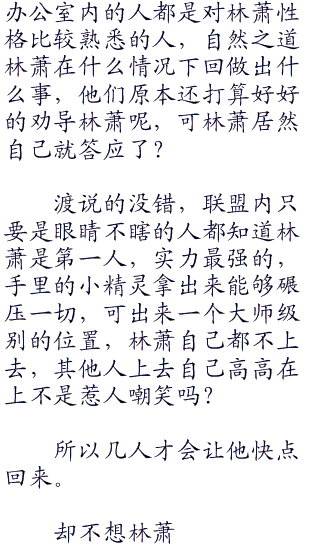 办公室内的人都是对林萧性
格比较熟悉的人，自然之道
林萧在什么情况下回做出什
么事，他们原本还打算好好
的劝导林萧呢，可林萧居然
自己就答应了？
渡说的没错，联盟内只
要是眼睛不瞎的人都知道林
萧是第一人，实力最强的，
手里的小精灵拿出来能够碾
压一切，可出来一个大师级
别的位置，林萧自己都不上
去，其他人上去自己高高在
上不是惹人嘲笑吗？
所以几人才会让他快点
回来。
却不想林萧